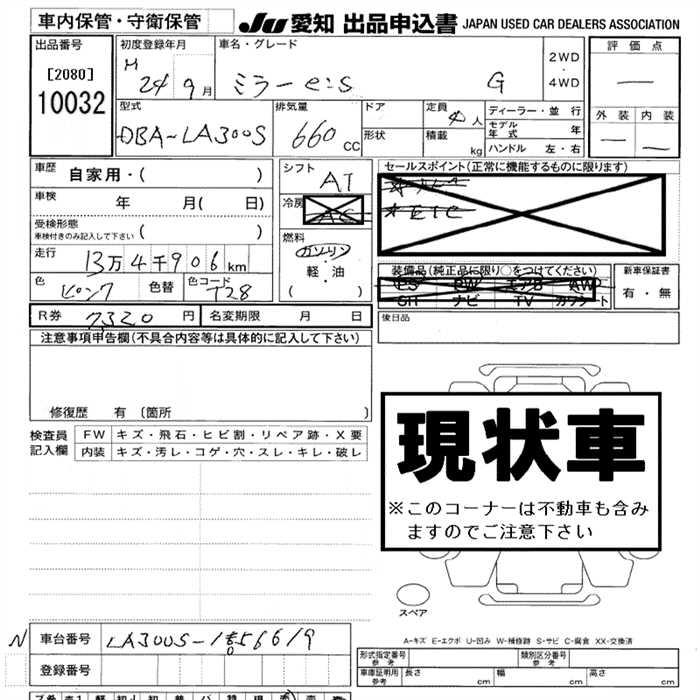 車内保管・守衛保管
JU 愛知 出品申込書 JAPAN USED CAR DEALERS ASSOCIATION
出品番号
[2080]
10032
初度登録年月
H
24 9月
車名・グレード
ミラーe:s G
2WD
・
4WD
評価点
—
外装 内装
— —
型式
DBA-LA300S
排気量
660 cc
ドア
形状
定員 4 人
積載 kg
ディーラー・並行
モデル年式 年
ハンドル 左・右
車歴
自家用・( )
車検 年 月( 日)
受検形態
車検付きのみ記入して下さい ( )
走行
13万4千906km
色 ピンク 色替 色コード T28
シフト AT
冷房 AC
燃料
ガソリン
・
軽・油
( )
セールスポイント(正常に機能するものに限ります)
*ETC
装備品(純正品に限り○をつけてください)
PS PW エアB AW
SH ナビ TV カワシート
新車保証書
有・無
R券 7320 円 名変期限 月 日
後日品
注意事項申告欄(不具合内容等は具体的に記入して下さい)
修復歴 有 〔箇所 〕
検査員
記入欄
FW キズ・飛石・ヒビ割・リペア跡・X要
内装 キズ・汚レ・コゲ・穴・スレ・キレ・破レ
現状車
※このコーナーは不動車も含み
ますのでご注意下さい
スペア
A-キズ E-エクボ U-凹み W-補修跡 S-サビ C-腐食 XX-交換済
N 車台番号
登録番号
形式指定番号
参考
類別区分番号
参考
車庫証明用
参考
長さ cm 幅 cm 高さ cm